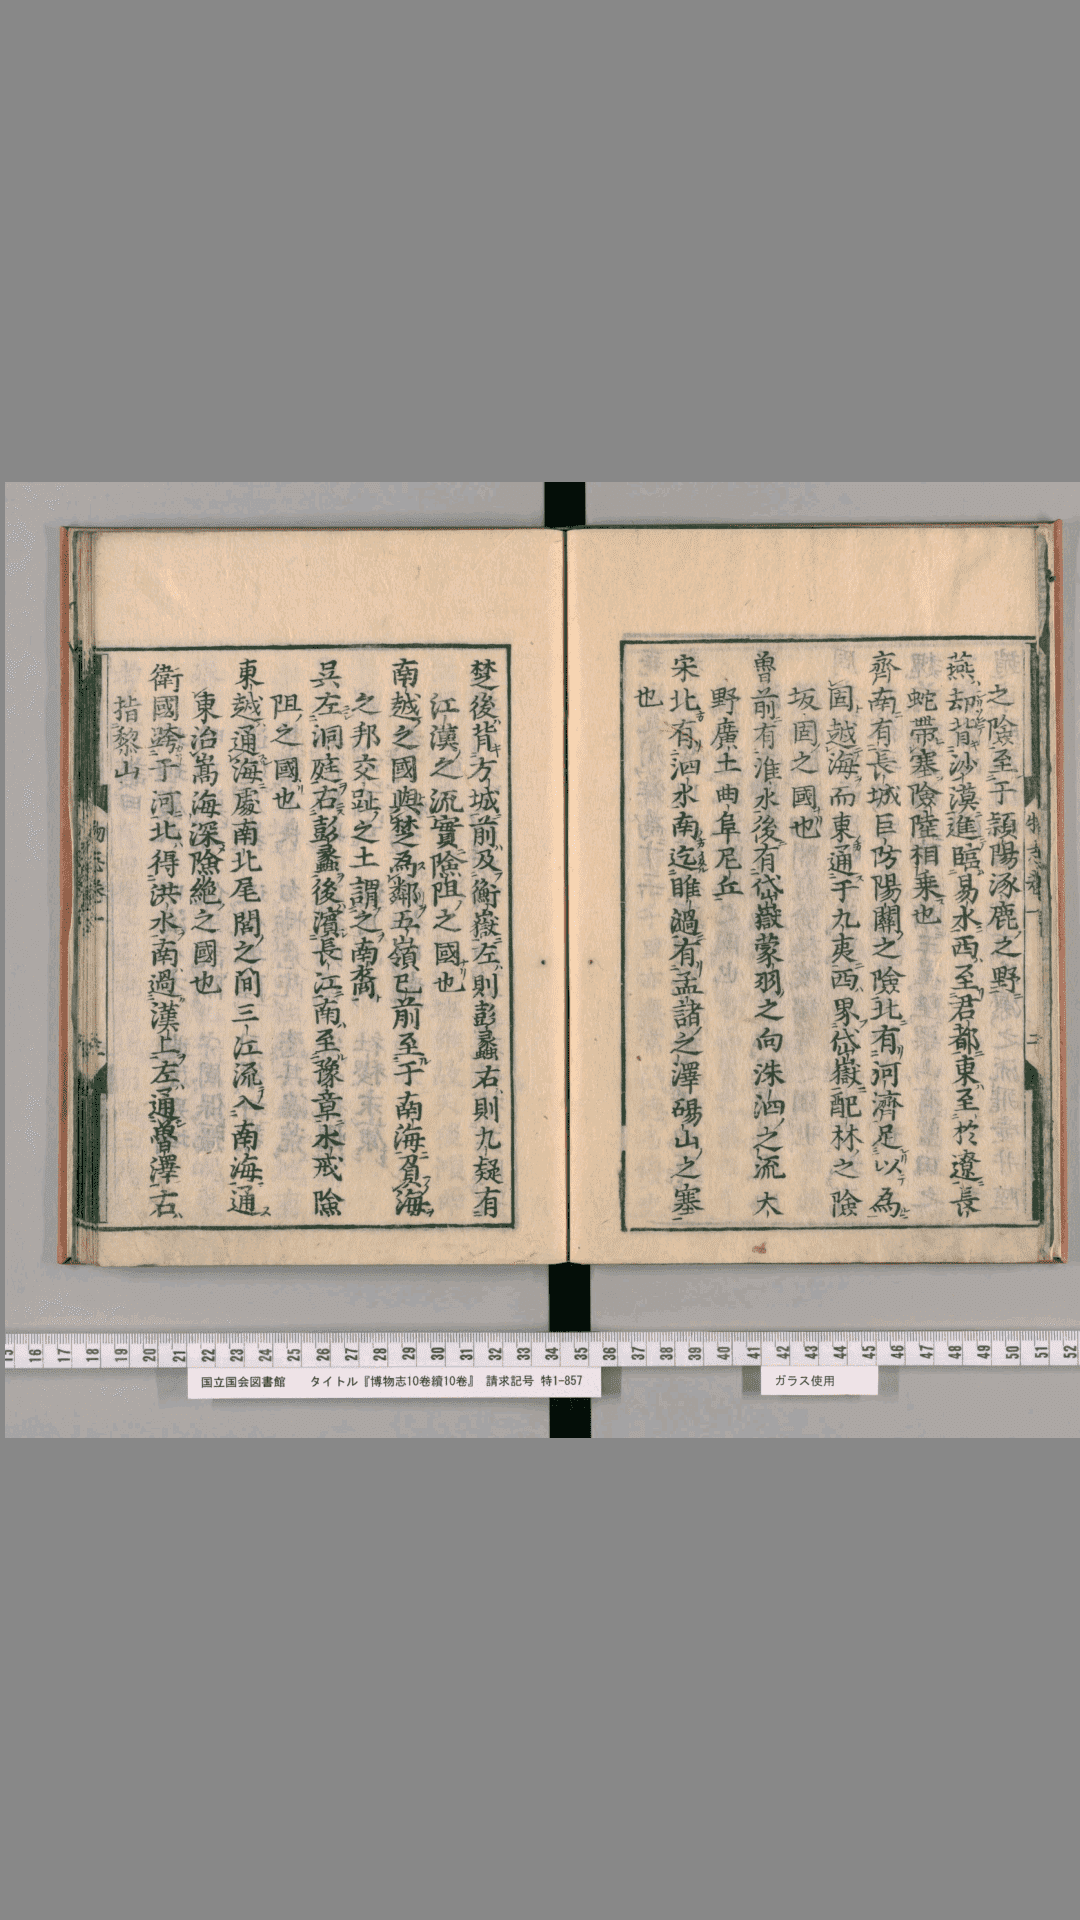 之險至于穎陽涿鹿之野
燕却背沙漠進臨易水西至君都東至於遼長
蛇帶塞險陸相乗也
齊南有長城巨防陽關之險北有河濟足以為
固越海而東通于九夷西界岱嶽配林之險
坂固之國也
魯前有淮水後有岱嶽蒙羽之向洙泗之流大
野廣土曲阜尼丘
宋北有泗水南迄睢過有孟諸之澤碭山之塞
也
楚後背方城前及衡嶽左則彭蠡右則九疑有
江漢之流實險阻之國也
南越之國與楚為鄰五嶺已前至于南海負海
之邦交趾之土謂之南裔
吳左洞庭右彭蠡後濱長江南至豫章水戒險
阻之國也
東越通海處南北尾閭之間三江流入南海通
東治嵩海深險絶之國也
衛國跨于河北得洪水南過漢上左通魯澤右
指黎山
15 16 17 18 19 20 21 22 23 24 25 26 27 28 29 30 31 32 33 34 35 36 37 38 39 40 41 42 43 44 45 46 47 48 49 50 51 52
国立国会図書館 タイトル『博物志10巻續10巻』 請求記号 特1-857
ガラス使用